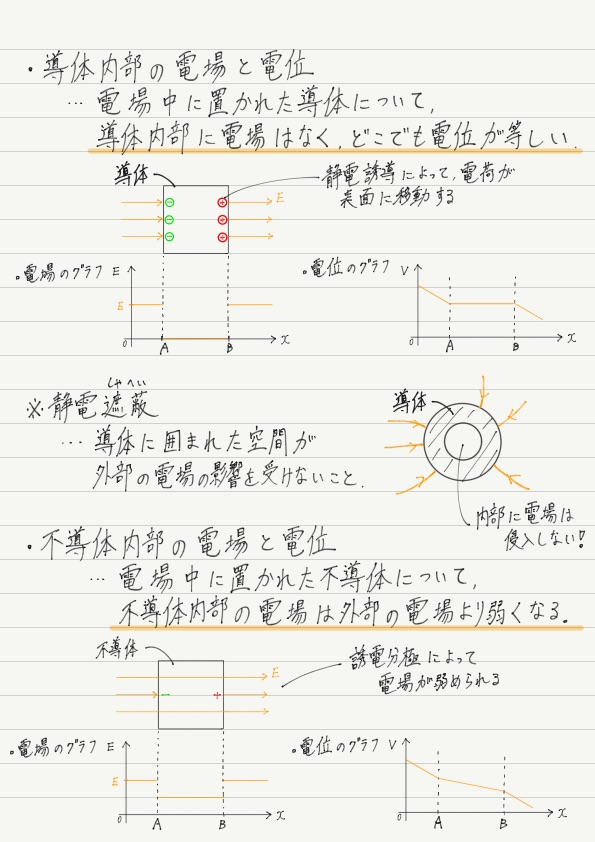 ・導体内部の電場と電位
… 電場中に置かれた導体について,
導体内部に電場はなく,どこでも電位が等しい.
導体
静電誘導によって,電荷が
表面に移動する
E
− +
− +
− +
。電場のグラフ E
E
0 A B x
。電位のグラフ V
0 A B x
※静電遮蔽
しゃへい
… 導体に囲まれた空間が
外部の電場の影響を受けないこと.
導体
内部に電場は
侵入しない!
・不導体内部の電場と電位
… 電場中に置かれた不導体について,
不導体内部の電場は外部の電場より弱くなる.
不導体
誘電分極によって
電場が弱められる
E
− +
。電場のグラフ E
E
0 A B x
。電位のグラフ V
0 A B x